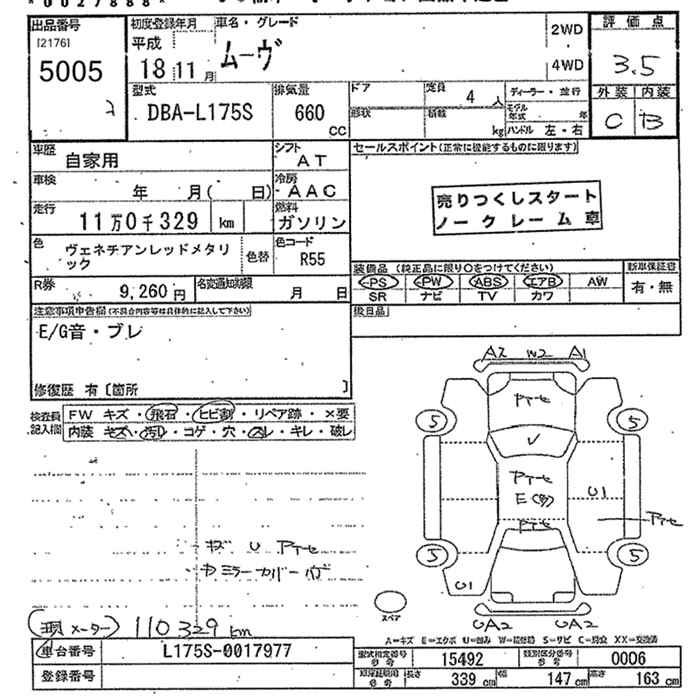 *0027888*
出品番号
[2176]
5005
2
初度登録年月
平成
18 11 月
車名・グレード
ムーヴ
2WD
4WD
評価点
3.5
外装 内装
C B
型式
DBA-L175S
排気量
660
CC
ドア
形状
定員
4 人
積載
kg
ディーラー・並行
モデル年式 年
ハンドル 左・右
車歴
自家用
シフト
AT
車検
年 月( 日)
冷房
AAC
走行
11万0千329 km
燃料
ガソリン
色
ヴェネチアンレッドメタリック
色替
色コード
R55
R券
9,260円
名変通知期限
月 日
セールスポイント(正常に機能するものに限ります)
売りつくしスタート
ノークレーム車
装備品 (純正品に限り○をつけてください)
PS PW ABS エアB AW
SR ナビ TV カワ
新車保証書
有・無
後日品
注意事項申告欄(不具合内容等は具体的に記入して下さい)
E/G音・ブレ
修復歴 有 [箇所 ]
検査員記入欄
FW キズ・飛石・ヒビ割・リペア跡・×要
内装 キズ・汚れ・コゲ・穴・スレ・キレ・破レ
A2 W2 A1
5 5
U1
5 5
U1
UA2 UA2
スペア
キズ U
現メーター 110329 km
A=キズ E=エクボ U=凹み W=補修跡 S=サビ C=腐食 XX=交換済
車台番号
L175S-0017977
登録番号
型式指定番号
参考
15492
類別区分番号
参考
0006
車庫証明用
参考
長さ 339 cm
幅 147 cm
高さ 163 cm